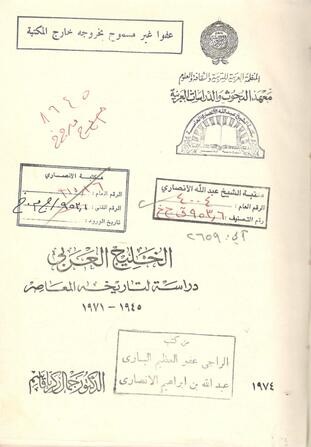 عفوا غير مسموح بخروجه خارج المكتبة
المنظمة العربية للتربية والثقافة والعلوم
معهد البحوث والدراسات العربية
٨٦٤٥
مكتبة الانصاري
الرقم العام:
الرقم الفنى:
تاريخ الورود:
مكتبة الشيخ عبد الله الانصاري
الرقم العام: ٤٠٠٤
رقم التصنيف:
٢٦٥٩
الخليج العربي
دراسة لتاريخه المعاصر
١٩٤٥ - ١٩٧١
من كتب
الراجي عفو العظيم الباري
عبد الله بن ابراهيم الانصاري
الدكتور جمال زكريا قاسم
١٩٧٤